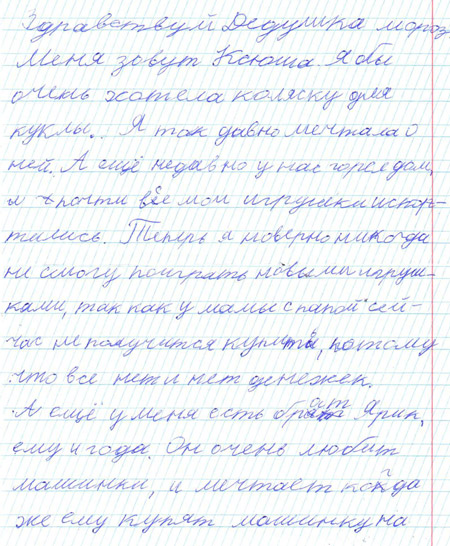 Здравствуй Дедушка мороз,
Меня зовут Ксюша. Я бы
очень хотела коляску для
куклы.. Я так давно мечтала о
ней. А ещё недавно у нас горел дом,
и почти все мои игрушки испор-
тились. Теперь я наверно никогда
не смогу поиграть новыми игруш-
ками, так как у мамы с папой сей-
час не получится купить, потому
что всё нет и нет денежек.
А ещё у меня есть брат Ярик,
ему 4 года. Он очень любит
машинки, и мечтает когда
же ему купят машинку на